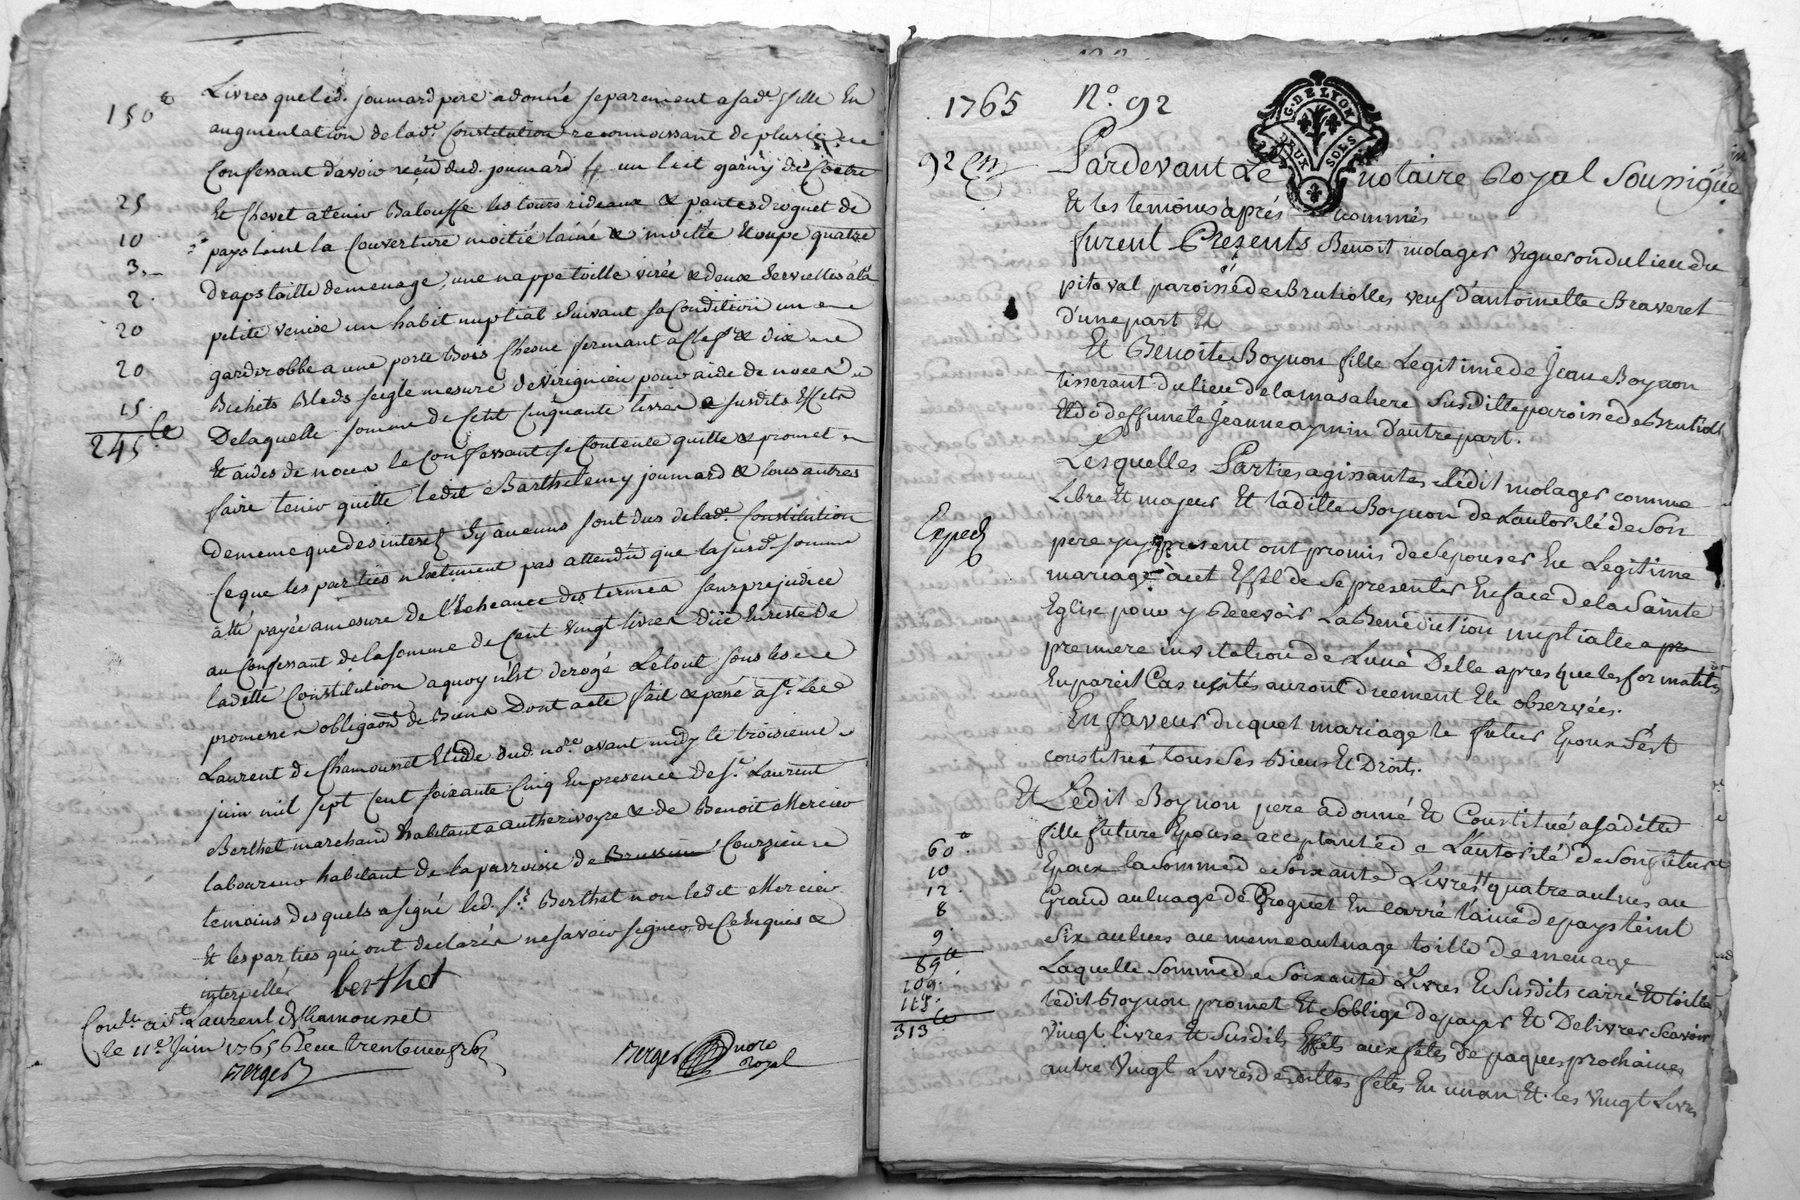 150ᵗᵗ
25
10
3.-
2.
20
20
15.
245ᵗᵗ
Livres que led. joumard pere a donné separement a sade. fille En
augmentation de lade. Constitution reconnoissant de plus
Confessant d'avoir reçu dud. joumard un lit garny de Coetre
Et Chevet a tenir Balouffe les tours rideaux & pantes droguet de
pays teint la Couverture moitié lainé & moitié Etoupe quatre
draps toille de menage, une nappe toille virée & deux serviettes à la
petite venise un habit nuptial suivant sa Condition un
garderobbe a une porte Bois Chesne fermant a Clef & dix
Bichets Bleds seigle mesure de pour aide de noces
De laquelle somme de Cent Cinquante livres & susdits Effets
Et aides de noces le Confessant se Contente quitte & promet
faire tenir quitte ledit Barthelemy joumard & tous autres
de meme que des interets sy aucuns sont dus de lade. Constitution
Ce que les parties n'Estiment pas attendu que la susd. somme
a été payée a mesure de l'Echeance des termes sans prejudice
au Confessant de la somme de Cent vingt livres due En reste de
ladette Constitution a quoy n'Est derogé Le tout sous les
promesses obligaõn de Biens Dont acte fait & passé a St.
Laurent de Chamousset Etude dud. nore. avant midy le troisieme
juin mil sept Cent soixante Cinq En presence de Sr. Laurent
Berthet marchand habitant a & de Benoit Mercier
laboureur habitant de la parroisse de Courzieu
temoins desquels a signé led. Sr. Berthet non ledit Mercier
Et les parties qui ont declarés ne savoir signer de Ce Enquis &
interpellés berthet
Conlé. a St. Laurent de Chamousset
le 11e Juin 1765
Berger
Berger nore
Royal
1765 No. 92
G. DE LYON
DEUX SOLS
92
Pardevant Le notaire Royal Soussigné
Et les temoins après nommés
furent Présents Benoit molager Vigneron du lieu du
pitaval paroisse de Brullolles veuf d'antoinette Braveret
D'une part Et
Et Benoite Boynon fille Legitime de Jean Boynon
tisserant du lieu de la masahere Susditte paroisse de Brulioll
Et de deffunete Jeanne aymin D'autre part.
Lesquelles Parties agissantes Ledit molager comme
Libre Et majeur Et laditte Boynon de L'autorité de Son
Exped
pere y present ont promis de Sepouser En Legitime
mariage a cet Effet de Se presenter En face de la Sainte
Eglise pour y Recevoir La Benediction nuptialle a
premiere invitation de L'une Delle apres que les formalités
En pareil Cas usités auront duement Eté observées.
En faveur duquel mariage le futur Epoux S'est
constitué tous Ses Biens Et Droits.
Et Ledit Boynon pere a donné Et Constitué a sadette
fille future Epouse acceptante de L'autorité de Son futur
Epoux la Somme de Soixante Livres quatre aulnes au
Grand aulnage de Droguet En carré lainé de pays teint
Six aulnes au meme aulnage toille de menage
Laquelle Somme de Soixante Livres Et Susdits carré Et toille
ledit Boynon promet Et S'oblige de payer Et Delivrer Scavoir
Vingt livres Et Susdits Effets aux fetes de paques prochaines
autre Vingt Livres dedittes fetes En un an Et les Vingt Livres
60ᵗᵗ
10
12.
8
9.
89ᵗᵗ
109.
115.
313ᵗᵗ